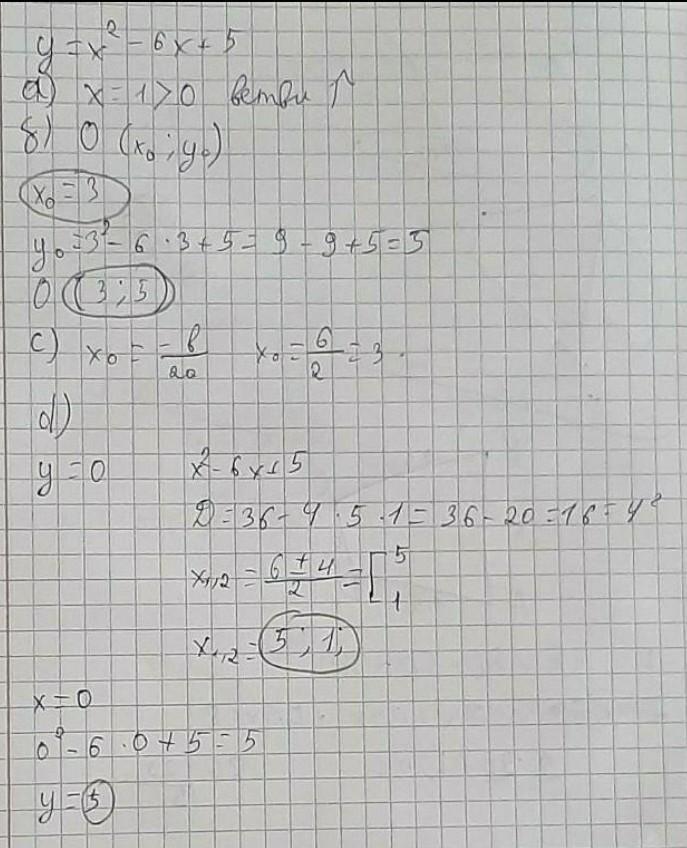 y = x² - 6x + 5
а) x = 1 > 0 ветви ↑
б) O (x₀ ; y₀)
x₀ = 3
y₀ = 3² - 6 · 3 + 5 = 9 - 9 + 5 = 5
O (3 ; 5)
c) x₀ = -b/2a x₀ = 6/2 = 3
d)
y = 0 x² - 6x + 5
D = 36 - 4 · 5 · 1 = 36 - 20 = 16 = 4²
x₁,₂ = (6 ± 4)/2 = [ 5
1
x₁,₂ = 5 ; 1;
x = 0
0² - 6 · 0 + 5 = 5
y = 5